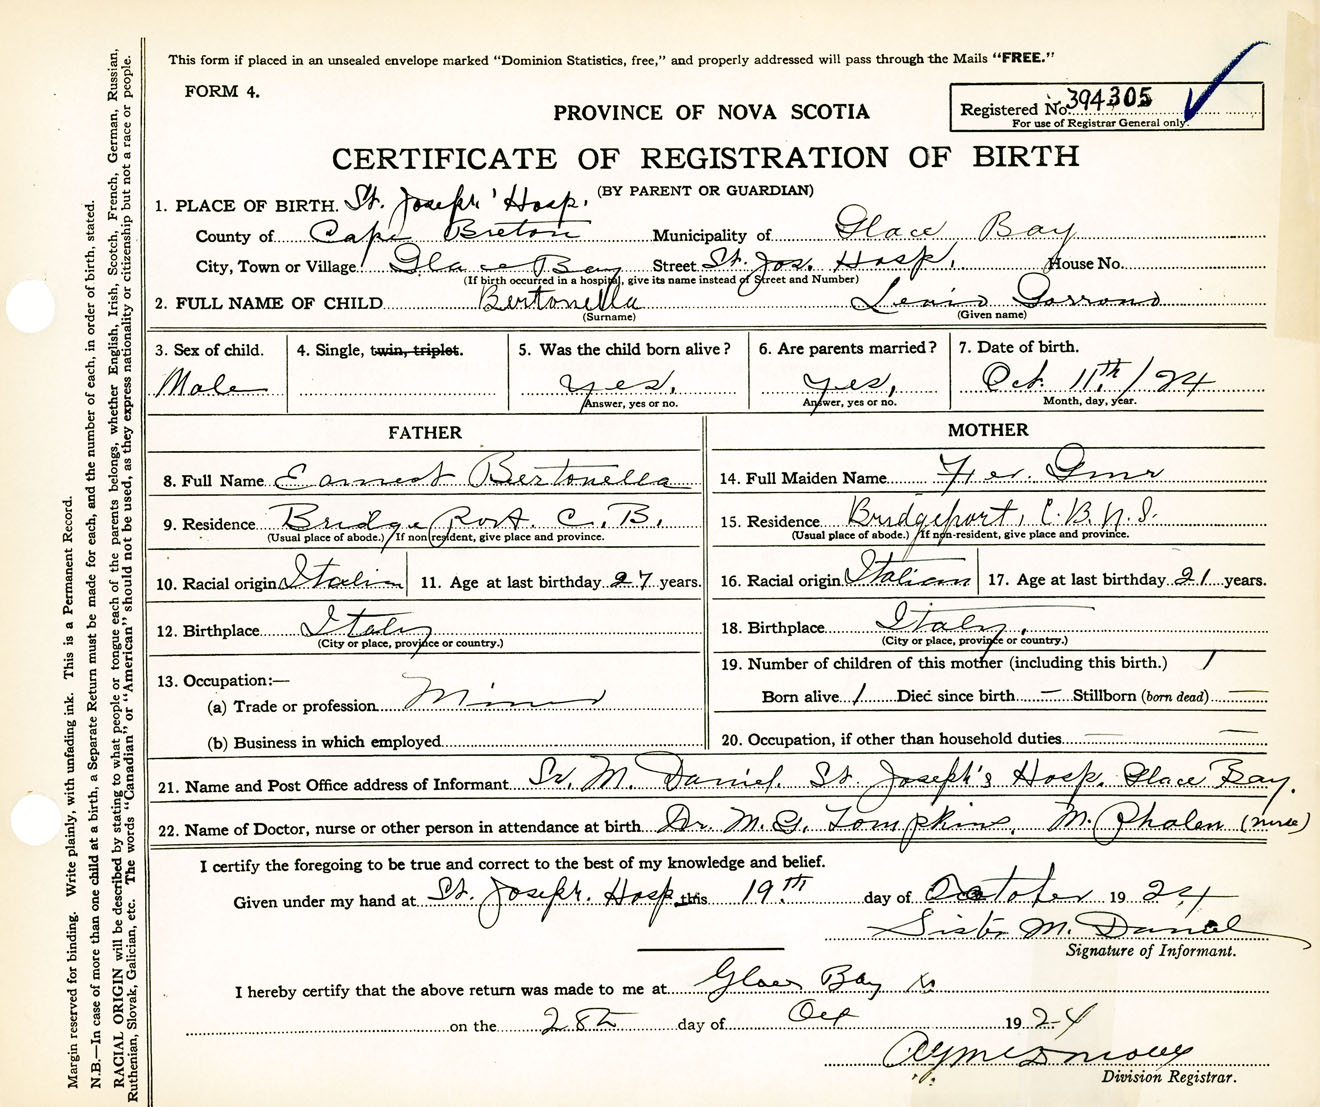 This form if placed in an unsealed envelope marked "Dominion Statistics, free," and properly addressed will pass through the Mails "FREE."
FORM 4.
PROVINCE OF NOVA SCOTIA
Registered No. 394305
For use of Registrar General only.
CERTIFICATE OF REGISTRATION OF BIRTH
(BY PARENT OR GUARDIAN)
1. PLACE OF BIRTH. St. Joseph' Hosp.
County of Cape Breton Municipality of Glace Bay
City, Town or Village Glace Bay Street St. Jos. Hosp. House No.
(If birth occurred in a hospital, give its name instead of Street and Number)
2. FULL NAME OF CHILD Bertonella
(Surname) (Given name)
3. Sex of child. 4. Single, twin, triplet. 5. Was the child born alive? 6. Are parents married? 7. Date of birth.
Male yes. yes, Oct 11th/24
Answer, yes or no. Answer, yes or no. Month, day, year.
FATHER MOTHER
8. Full Name Earnest Bertonella 14. Full Maiden Name
9. Residence Bridge Port. C. B. 15. Residence Bridgeport, C.B. N.S.
(Usual place of abode.) If non resident, give place and province. (Usual place of abode.) If non-resident, give place and province.
10. Racial origin Italian 11. Age at last birthday 27 years. 16. Racial origin Italian 17. Age at last birthday 21 years.
12. Birthplace Italy 18. Birthplace Italy.
(City or place, province or country.) (City or place, province or country.)
13. Occupation:— 19. Number of children of this mother (including this birth.) 1
(a) Trade or profession Miner Born alive 1 Died since birth — Stillborn (born dead) —
(b) Business in which employed 20. Occupation, if other than household duties — —
21. Name and Post Office address of Informant Sr. M. Daniel. St. Joseph's Hosp. Glace Bay.
22. Name of Doctor, nurse or other person in attendance at birth Dr. M. G. Tompkins, M. Phalen (nurse)
I certify the foregoing to be true and correct to the best of my knowledge and belief.
Given under my hand at St. Joseph. Hosp. this 19th day of October 1924
Sister M. Daniel
Signature of Informant.
I hereby certify that the above return was made to me at Glace Bay
on the 28th day of Oct 1924
Division Registrar.
Margin reserved for binding. Write plainly, with unfading ink. This is a Permanent Record.
N.B.—In case of more than one child at a birth, a Separate Return must be made for each, and the number of each, in order of birth, stated.
RACIAL ORIGIN will be described by stating to what people or tongue each of the parents belongs, whether English, Irish, Scotch, French, German, Russian,
Ruthenian, Slovak, Galician, etc. The words "Canadian" or "American" should not be used, as they express nationality or citizenship but not a race or people.